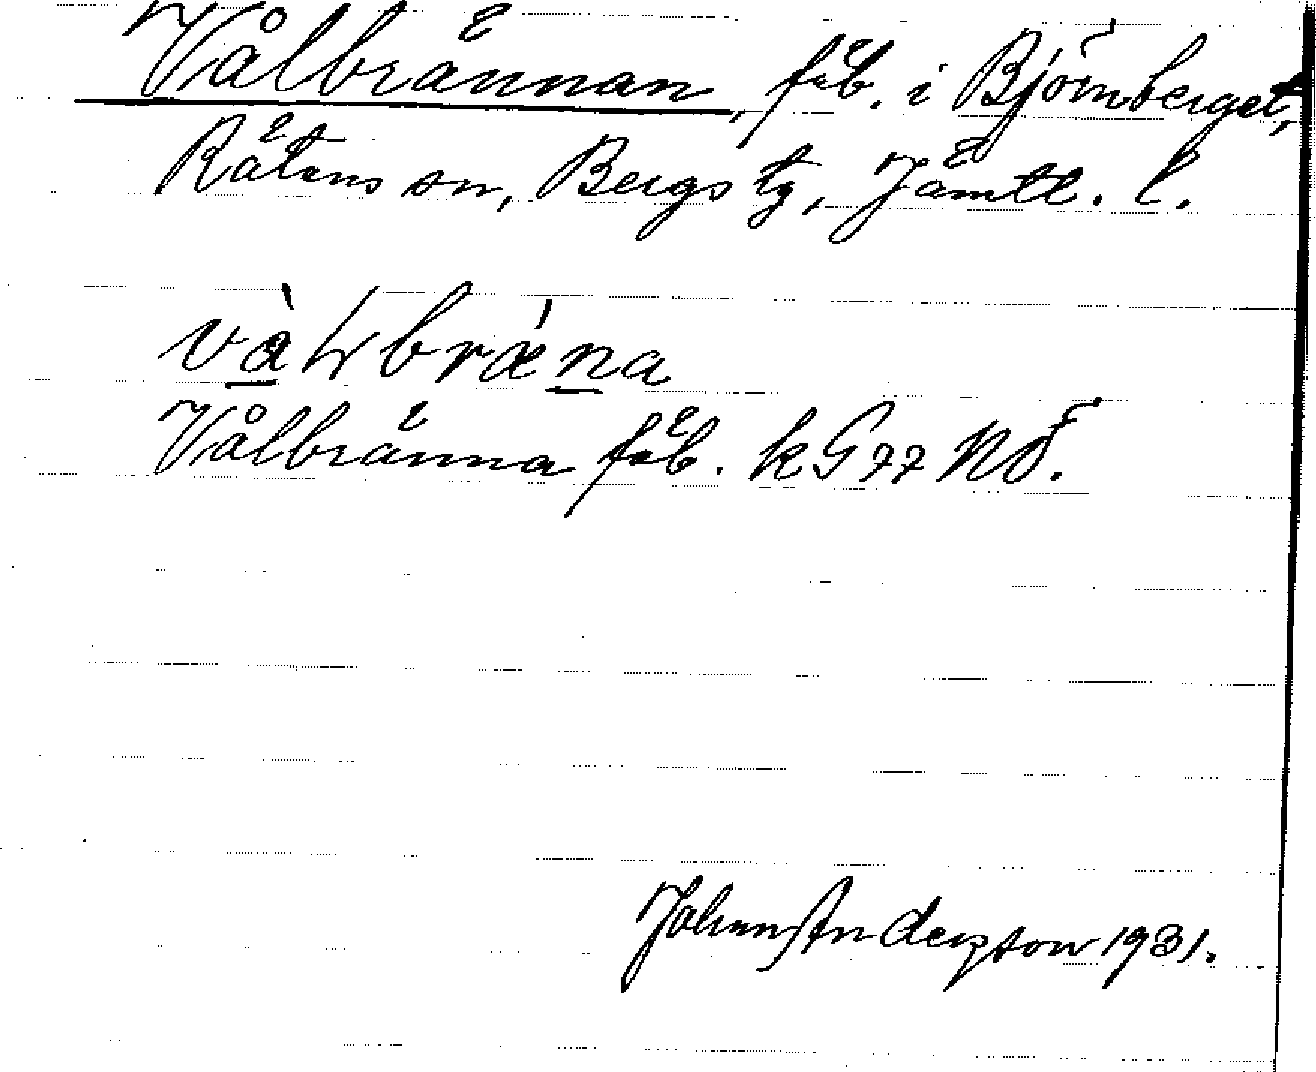 Vålbrännan, fäb. i Björnberget,
Rätans sn, Bergs tg, Jämtl. l.
vàɬbrǽna
Vålbränna fäb. kG77 NÖ.
Johan Anderzson 1931.